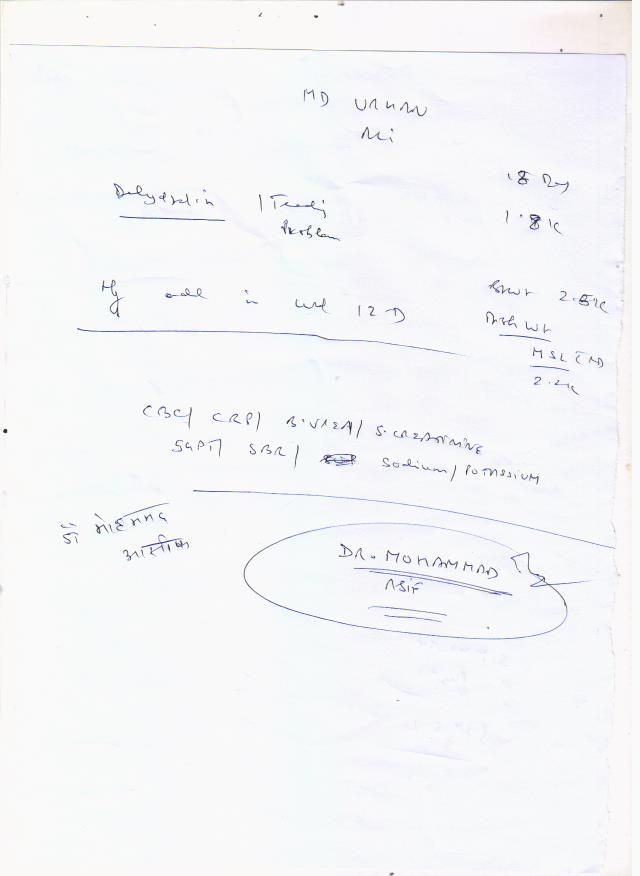 MD URHAN
Ali
18 Day
Dehydration / Feeding
Problem
1.8K
Hy adm in 12 D
B.Wt 2.8K
Wt
2.2K
CBC/ CRP/ B.UREA/ S.CREATININE
SGPT/ SBR/ Sodium/ POTASSIUM
डॉ मोहम्मद
आसीफ
DR. MOHAMMAD
ASIF